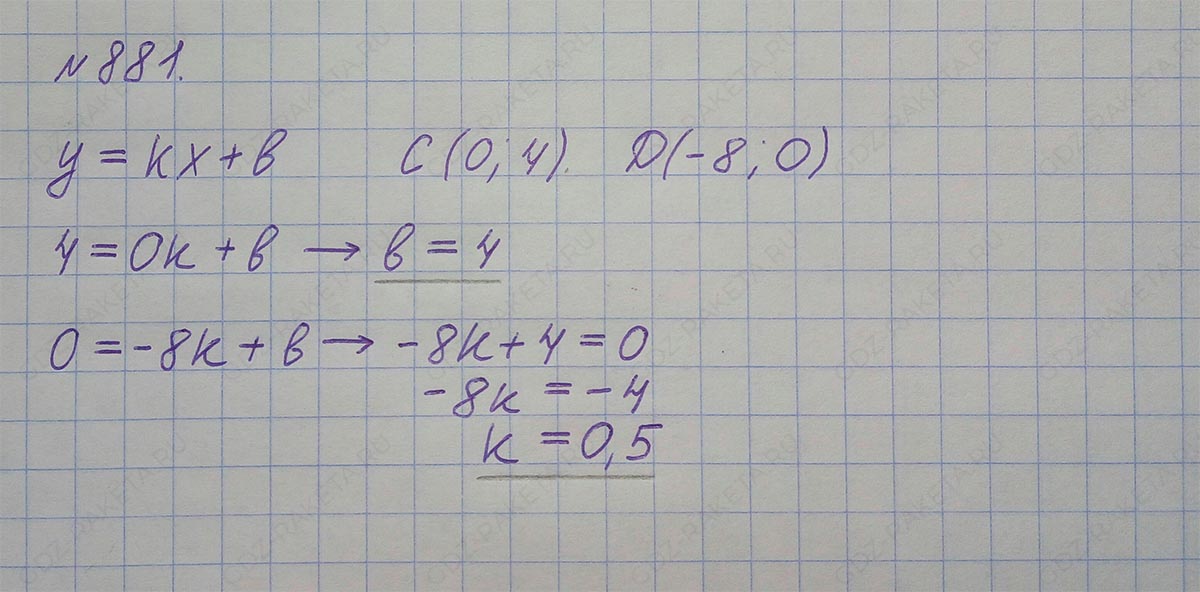 № 881.
y = kx + b C (0; 4). D(-8; 0)
4 = 0k + b → b = 4
0 = -8k + b → -8k + 4 = 0
-8k = -4
k = 0,5
GDZ-RAKETA.RU